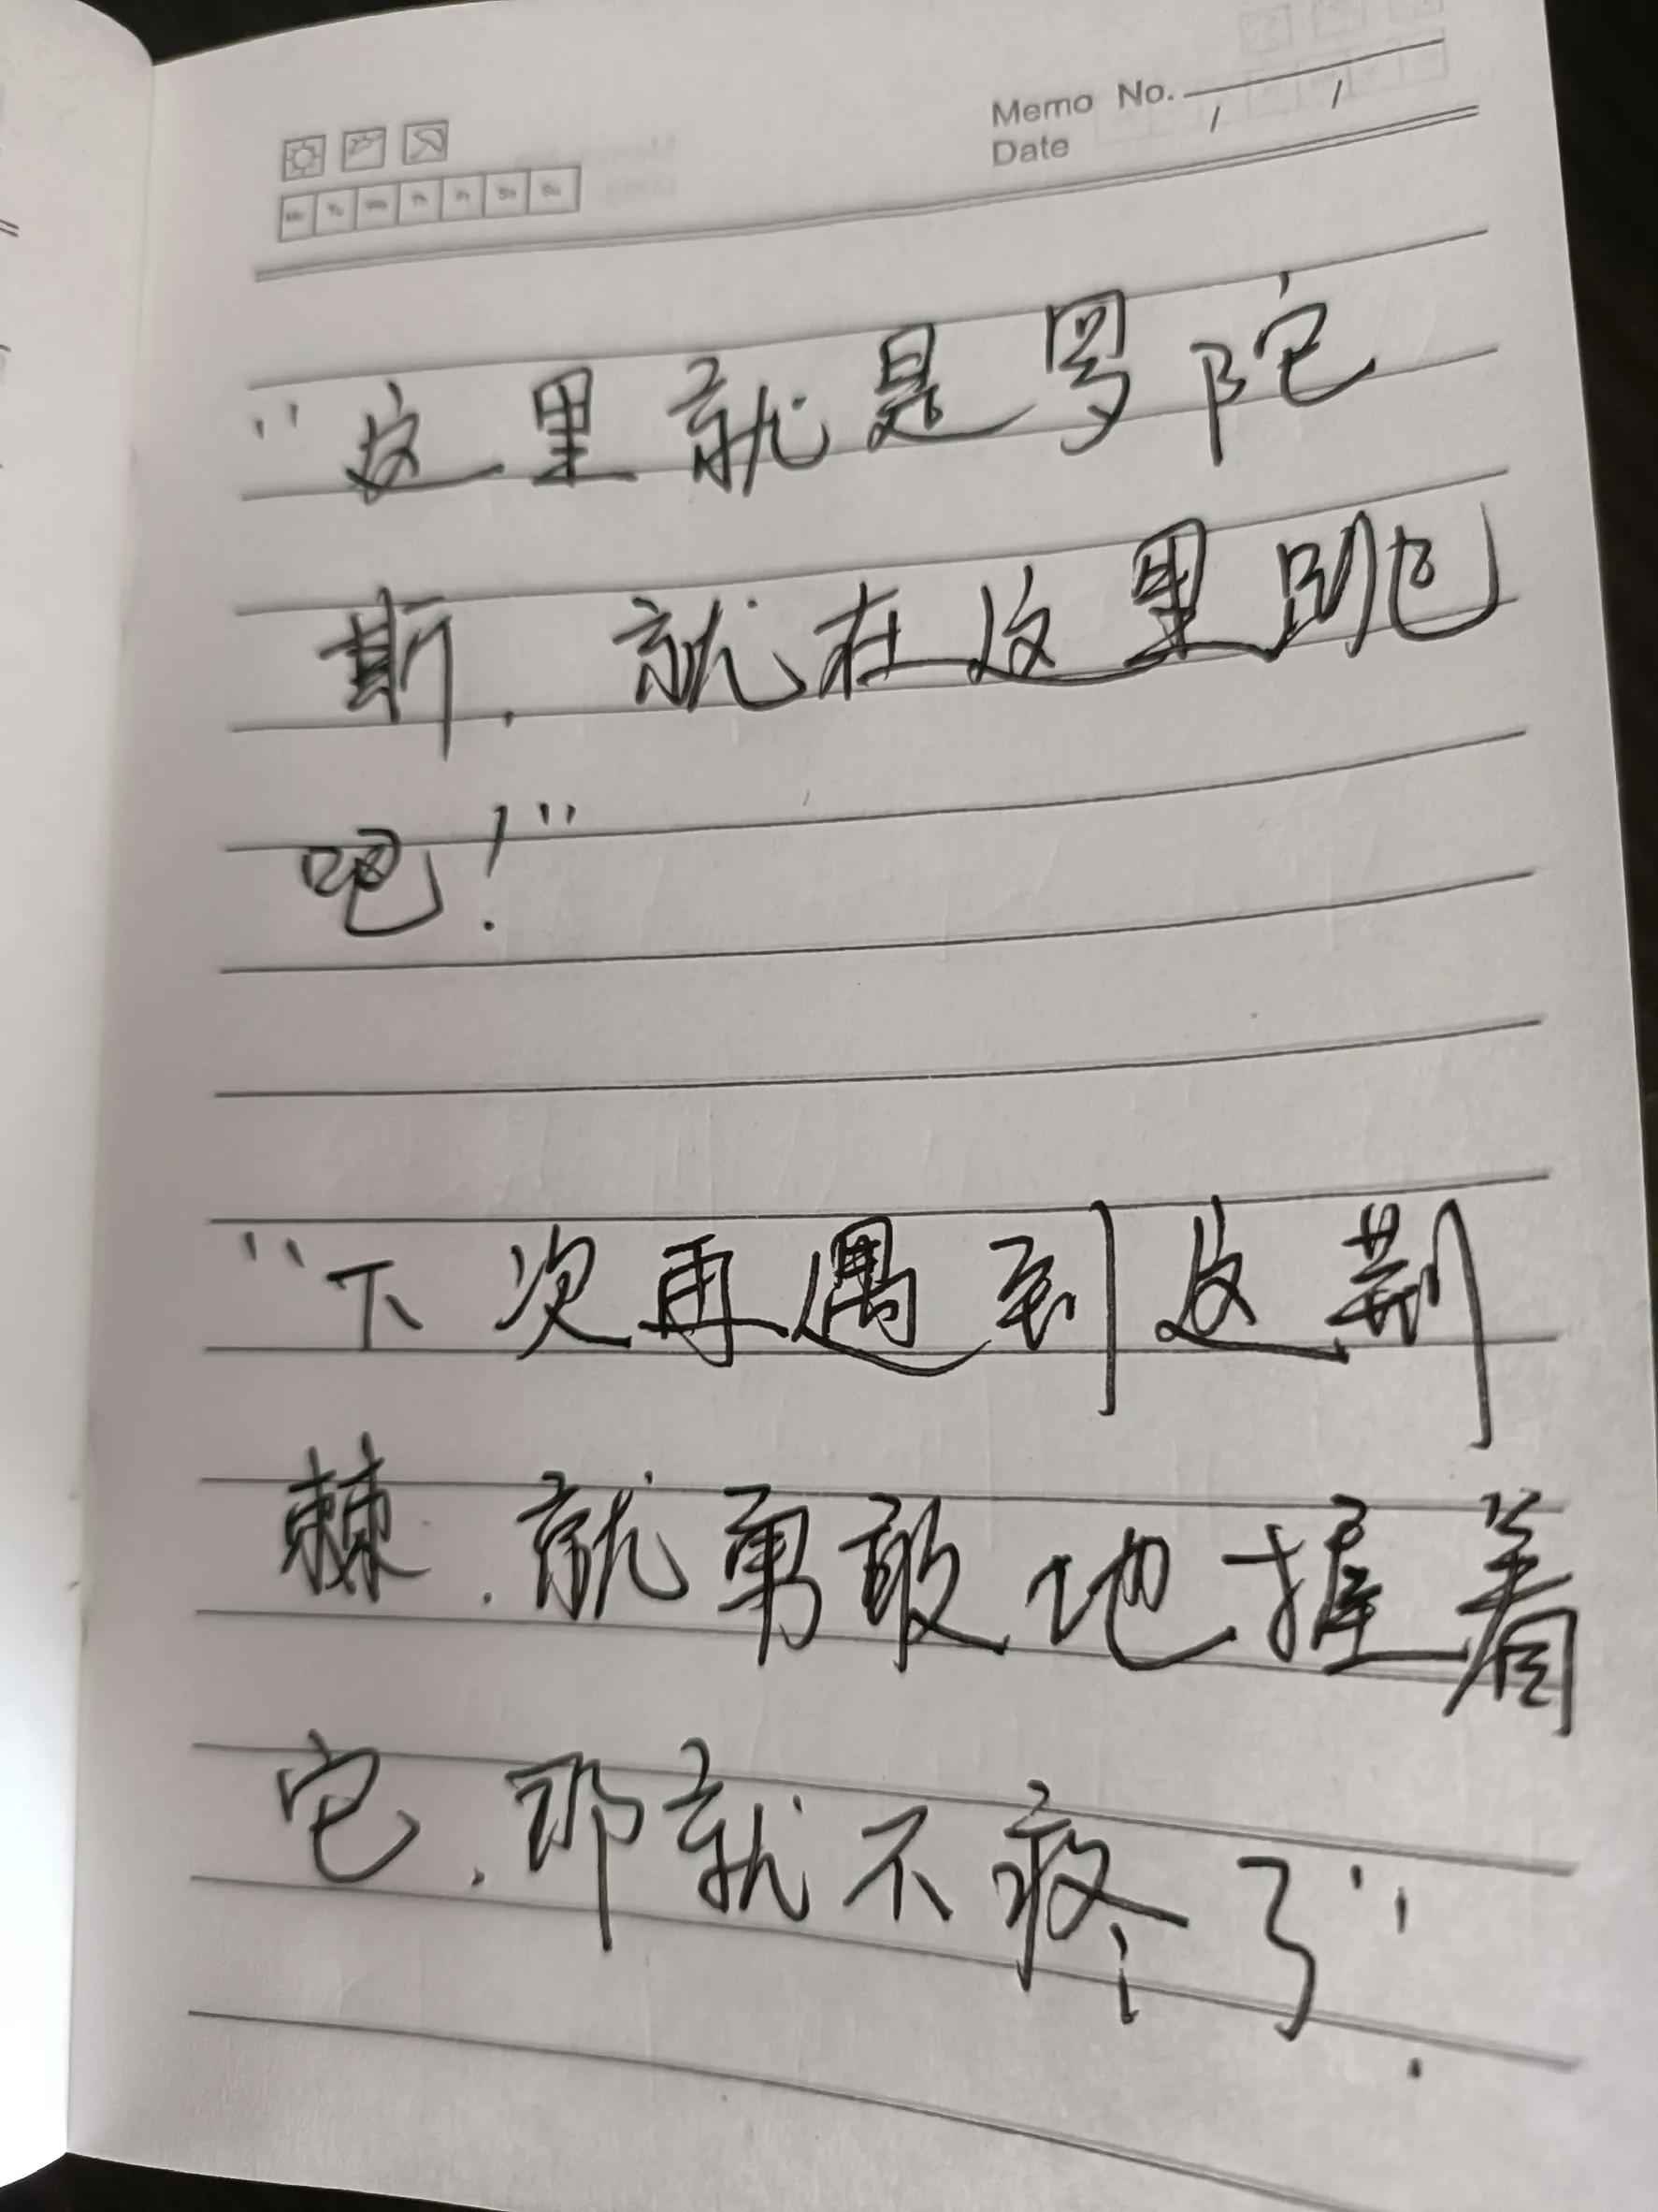 Memo No.
Date / /
Mo Tu We Th Fr Sa Su
"这里就是罗陀
斯,就在这里跳
吧!"
"下次再遇到这荆
棘,就勇敢地握着
它,那就不疼了"!